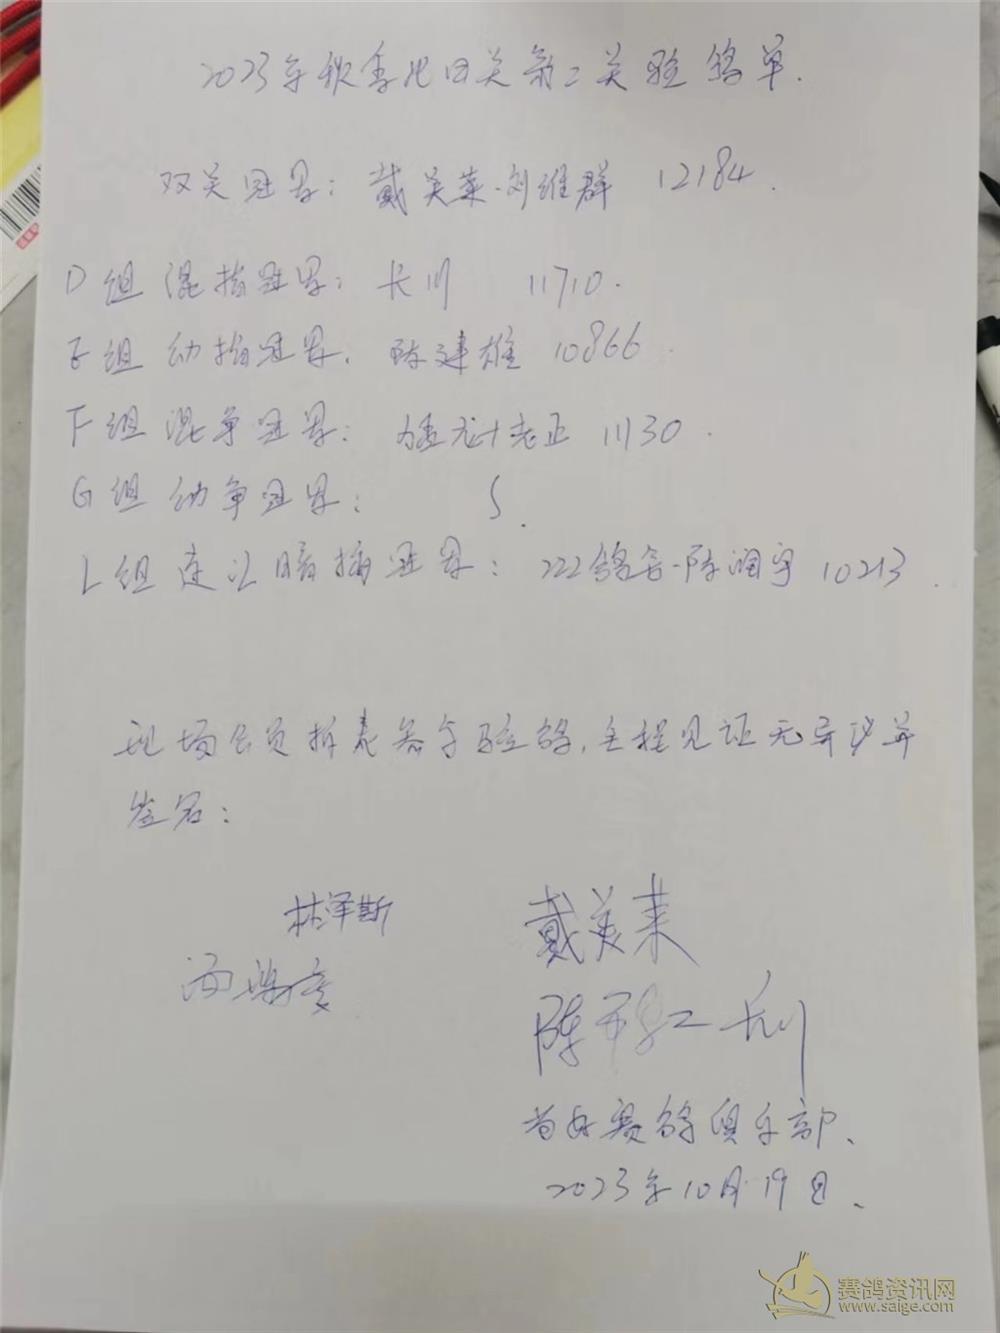 2023年秋季北田关第二关验鸽单.
双关冠军: 戴美莱-刘维群 12184.
D组混指冠军: 长川 11710.
E组幼指冠军. 陈建雄 10866.
F组混争冠军: 老正 11130.
G组幼争冠军: 〃.
L组连江暗插冠军: 222鸽舍-陈润宇 10213.
现场会员拆表参与验鸽,全程见证无异议并
签名:
林泽斯
戴美莱
陈 长川
赛鸽俱乐部.
2023年10月19日.
赛鸽资讯网
www.saige.com